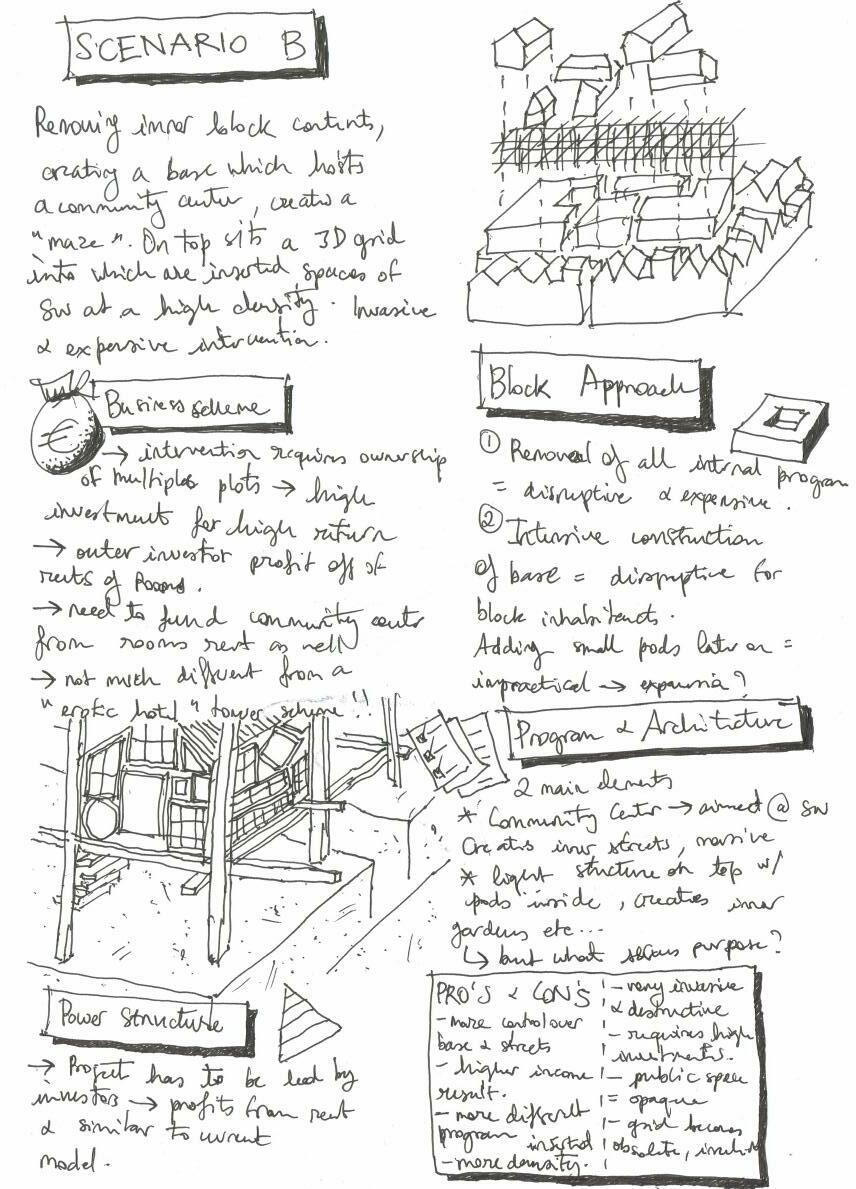 SCENARIO B
Removing inner block contents,
creating a base which hosts
a community center, creates a
"maze". On top sits a 3D grid
into which are inserted spaces of
SW at a high density. Invasive
& expensive intervention.
Business scheme
€
→ intervention requires ownership
of multiple plots → high
investment for high return
→ outer investor profit off of
rents of rooms.
→ need to fund community center
from rooms rent as well
→ not much different from a
"erotic hotel" tower scheme!!
Power Structure
→ Project has to be lead by
investors → profits from rent
& similar to current
model.
Block Approach
① Removal of all internal program
= disruptive & expensive.
② Intensive construction
of base = disruptive for
block inhabitants.
Adding small pods later on =
impractical → expansion?
Program & Architecture
2 main elements
* Community Center → aimed @ SW
Creates inner streets, massive
* light structure on top w/
pods inside, creates inner
gardens etc...
↳ but what serious purpose?
PRO'S & CON'S
- more control over
base & streets
- higher income
result.
- more difficult
program inserted
- more density.
- very invasive
& destructive
- requires high
investments.
- public space
= opaque
- grid becomes
obsolete,